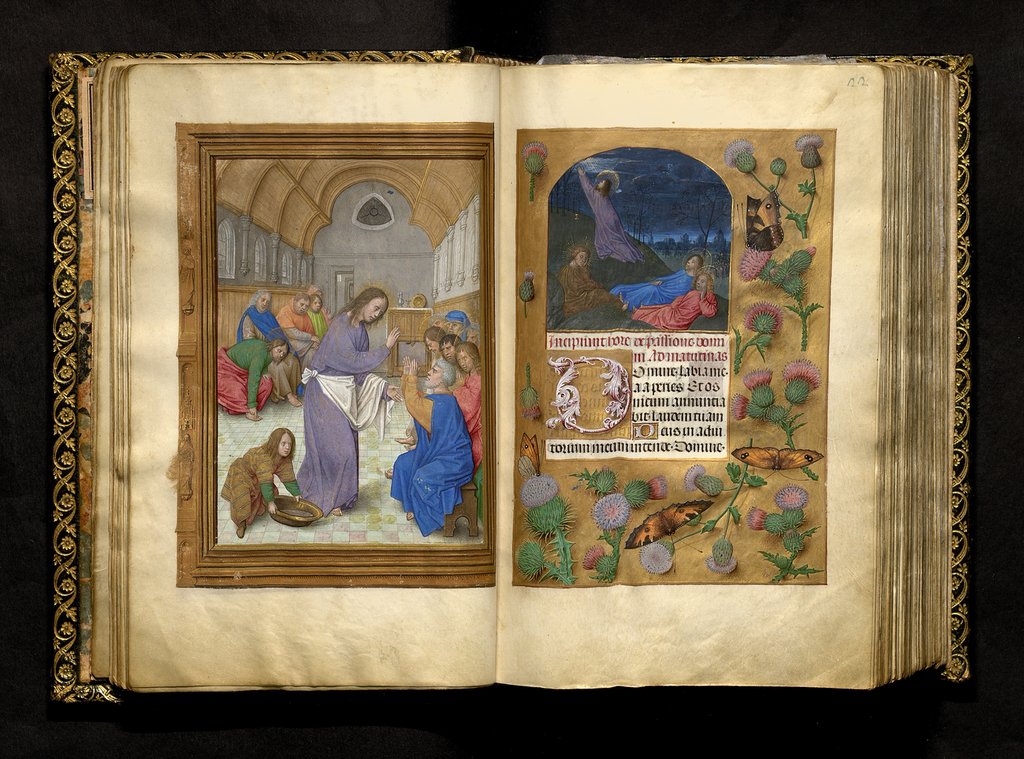 22
Incipiunt hore de passione domi
ni Ad matutinas
Domine labia me
a aperies Et os
meum annuncia
bit laudem tuam
Deus in adiu
torium meum intende Domine